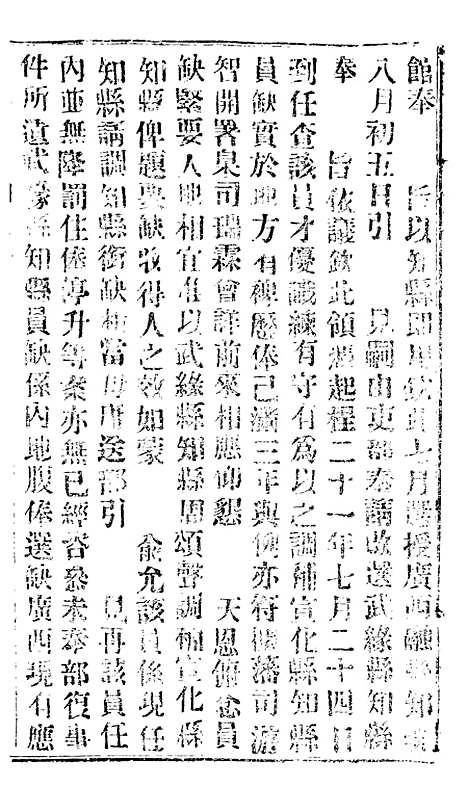 館奉 旨以知縣即用欽此七月選授廣西融縣知縣
八月初五日引 見嗣由吏部奏請改選武緣縣知縣
奉 旨依議欽此領憑起程二十一年七月二十四日
到任查該員才優識練有守有為以之調補宣化縣知縣
員缺實於地方有裨歷俸已滿三年與例亦符據藩司游
智開署臬司瑞霖會詳前來相應仰懇 天恩俯念員
缺緊要人地相宜准以武緣縣知縣周頌聲調補宣化縣
知縣俾題要缺收得人之效如蒙 俞允該員係現任
知縣請調知縣銜缺相當毋庸送部引 見再該員任
內並無降罰住俸停升等案亦無已經咨參未奉部復事
件所遺武緣縣知縣員缺係內地腹俸選缺廣西現有應